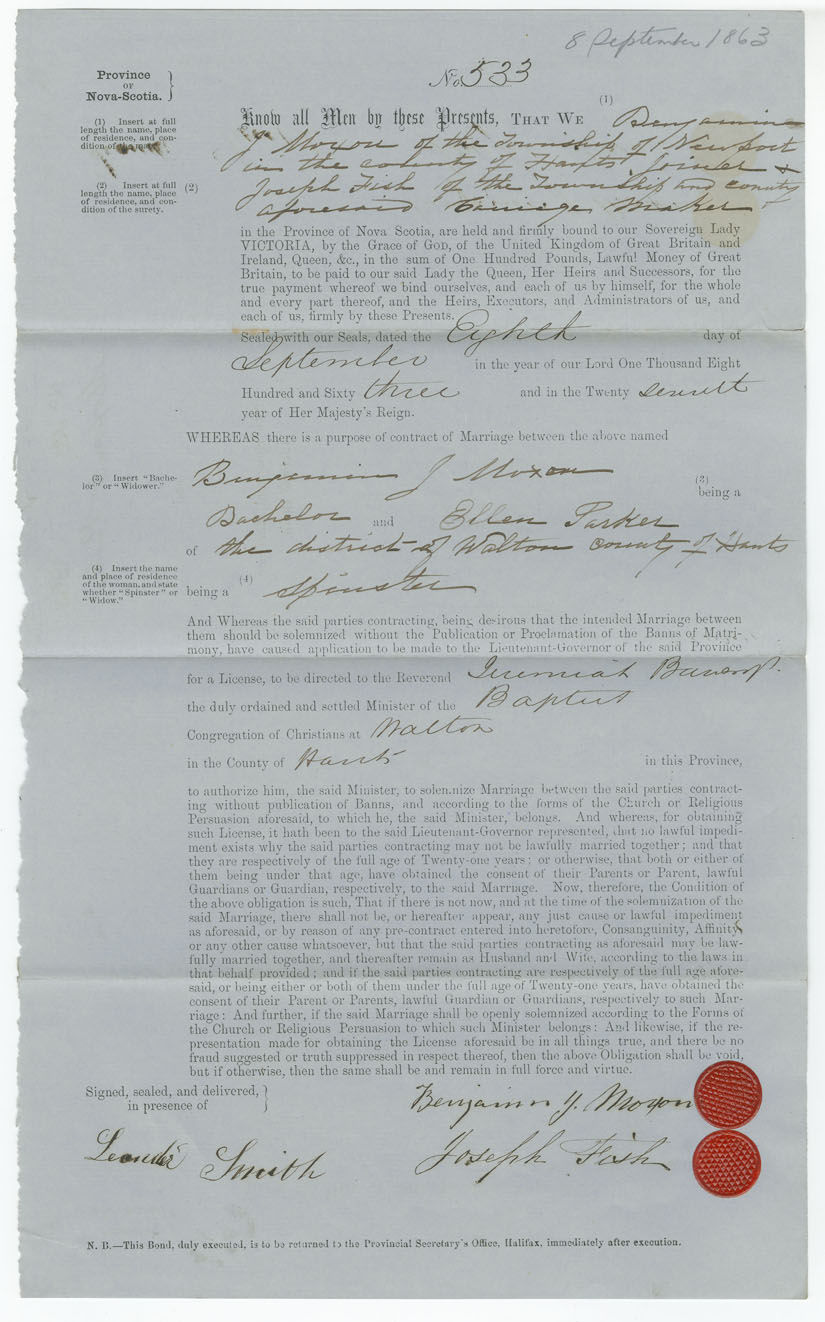 8 September 1863
Province
OF
Nova-Scotia.
No 533
(1) Insert at full
length the name, place
of residence, and con-
dition of the man.
Know all Men by these Presents, THAT WE (1) Benjamin
J Moxon of the Township of Newport
in the county of Hants Joiner &
(2) Insert at full
length the name, place
of residence, and con-
dition of the surety.
(2) Joseph Fish of the Township and county
aforesaid Carriage Maker
in the Province of Nova Scotia, are held and firmly bound to our Sovereign Lady
VICTORIA, by the Grace of GOD, of the United Kingdom of Great Britain and
Ireland, Queen, &c., in the sum of One Hundred Pounds, Lawful Money of Great
Britain, to be paid to our said Lady the Queen, Her Heirs and Successors, for the
true payment whereof we bind ourselves, and each of us by himself, for the whole
and every part thereof, and the Heirs, Executors, and Administrators of us, and
each of us, firmly by these Presents.
Sealed with our Seals, dated the Eighth day of
September in the year of our Lord One Thousand Eight
Hundred and Sixty three and in the Twenty
year of Her Majesty's Reign.
WHEREAS there is a purpose of contract of Marriage between the above named
(3) Insert "Bache-
lor" or "Widower."
Benjamin J Moxon (3)
being a
Bachelor and Ellen Parker
of the district of Walton county of Hants
(4) Insert the name
and place of residence
of the woman, and state
whether "Spinster" or
"Widow."
being a (4) Spinster
And Whereas the said parties contracting, being desirous that the intended Marriage between
them should be solemnized without the Publication or Proclamation of the Banns of Matri-
mony, have caused application to be made to the Lieutenant-Governor of the said Province
for a License, to be directed to the Reverend Jeremiah Bancroft
the duly ordained and settled Minister of the Baptist
Congregation of Christians at Walton
in the County of Hants in this Province,
to authorize him, the said Minister, to solemnize Marriage between the said parties contract-
ing without publication of Banns, and according to the forms of the Church or Religious
Persuasion aforesaid, to which he, the said Minister, belongs. And whereas, for obtaining
such License, it hath been to the said Lieutenant-Governor represented, that no lawful impedi-
ment exists why the said parties contracting may not be lawfully married together; and that
they are respectively of the full age of Twenty-one years; or otherwise, that both or either of
them being under that age, have obtained the consent of their Parents or Parent, lawful
Guardians or Guardian, respectively, to the said Marriage. Now, therefore, the Condition of
the above obligation is such, That if there is not now, and at the time of the solemnization of the
said Marriage, there shall not be, or hereafter appear, any just cause or lawful impediment
as aforesaid, or by reason of any pre-contract entered into heretofore, Consanguinity, Affinity
or any other cause whatsoever, but that the said parties contracting as aforesaid may be law-
fully married together, and thereafter remain as Husband and Wife, according to the laws in
that behalf provided; and if the said parties contracting are respectively of the full age afore-
said, or being either or both of them under the full age of Twenty-one years, have obtained the
consent of their Parent or Parents, lawful Guardian or Guardians, respectively to such Mar-
riage: And further, if the said Marriage shall be openly solemnized according to the Forms of
the Church or Religious Persuasion to which such Minister belongs: And likewise, if the re-
presentation made for obtaining the License aforesaid be in all things true, and there be no
fraud suggested or truth suppressed in respect thereof, then the above Obligation shall be void,
but if otherwise, then the same shall be and remain in full force and virtue.
Signed, sealed, and delivered,
in presence of
Benjamin J. Moxon
Leander Smith
Joseph Fish
N. B.—This Bond, duly executed, is to be returned to the Provincial Secretary's Office, Halifax, immediately after execution.